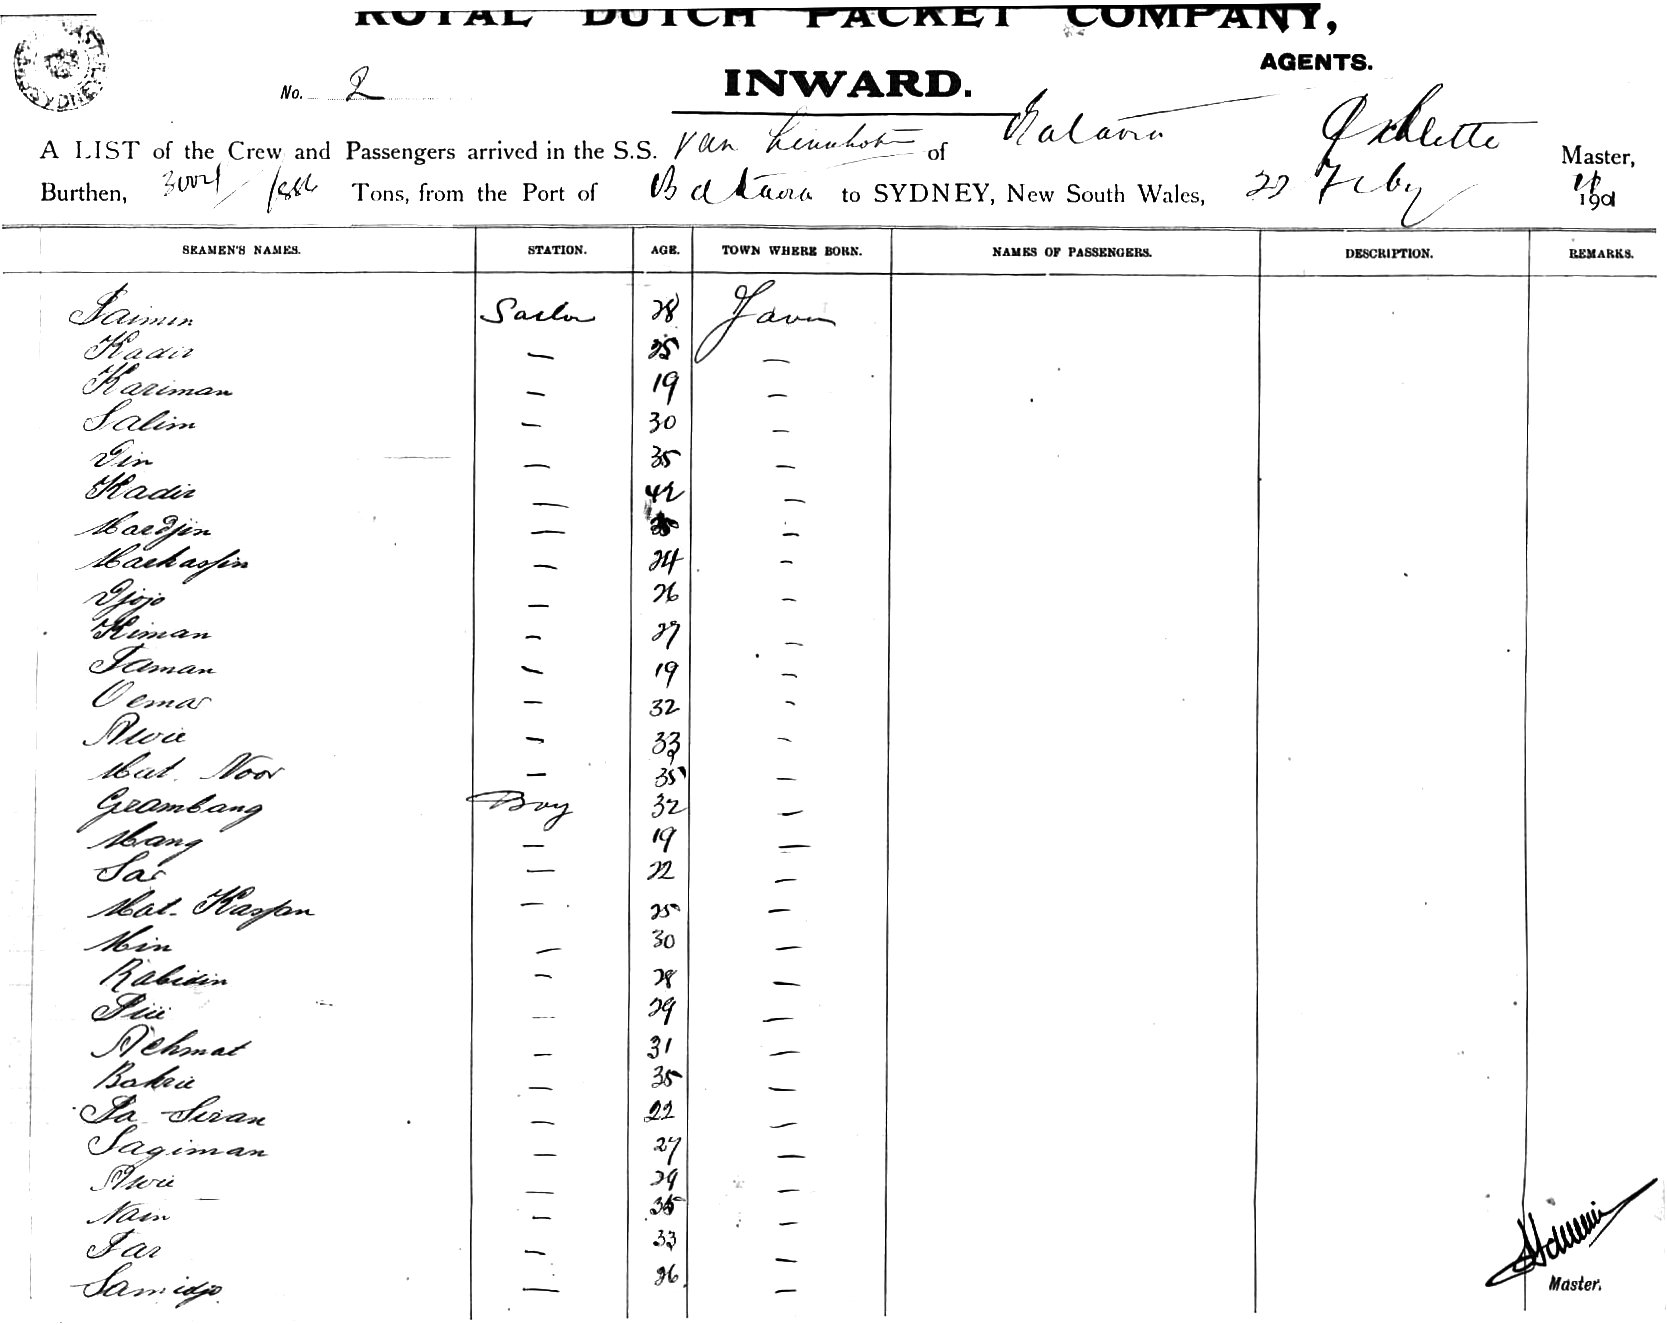 ROYAL DUTCH PACKET COMPANY,
AGENTS.
No. 2 INWARD.
A LIST of the Crew and Passengers arrived in the S.S. Van of Batavia Master,
Burthen, Tons, from the Port of Batavia to SYDNEY, New South Wales, 27 Feby 190
SEAMEN'S NAMES. STATION. AGE. TOWN WHERE BORN. NAMES OF PASSENGERS. DESCRIPTION. REMARKS.
Saimin Sailor 28 Java
Kadir — 25 —
Kariman — 19 —
Salim — 30 —
Gin — 35 —
Kadir — 42 —
Mardjin — 35 —
— 24 —
Djojo — 26 —
Kiman — 27 —
Taman — 19 —
Oemar — 32 —
Awie — 33 —
Mat. Noor — 35 —
Grambang Boy 32 —
Mang — 19 —
Sar — 22 —
Mat. — 25 —
Min — 30 —
Rabidin — 28 —
— 29 —
Achmat — 31 —
Bakrie — 35 —
Pa Siran — 22 —
Sagiman — 27 —
Awie — 29 —
Naim — 35 —
Tar — 33 —
Samidjo — 26 —
Master.